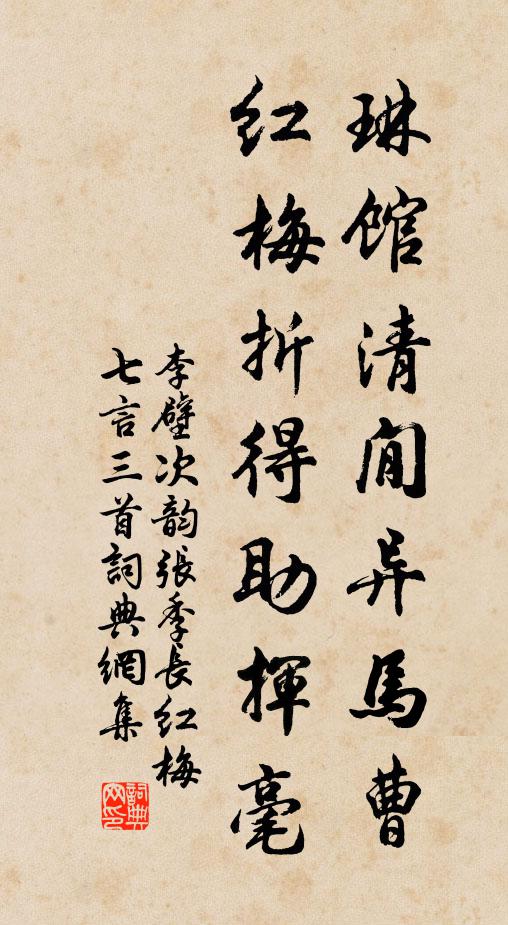 琳馆清閒异馬曹
红梅折得助揮毫
李壁次韵張季長红梅
七言三首詞典網集
詞典网印